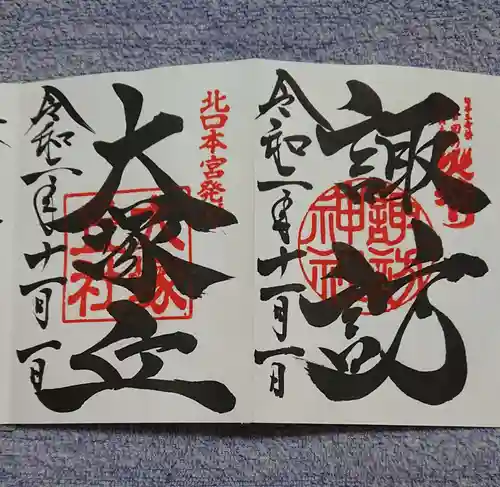 諏訪
諏訪
神社
令和一年十一月一日
北口本宮発
大塚丘
大塚
丘社
令和一年十一月一日